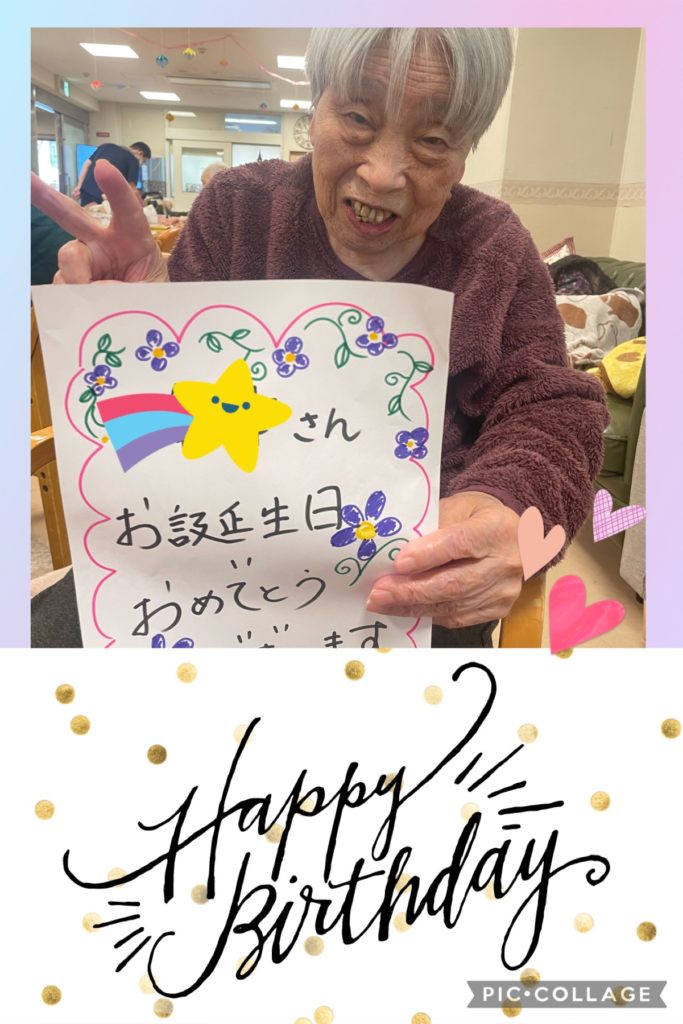 さん
お誕生日
おめでとう
ございます
Happy
Birthday
PIC•COLLAGE